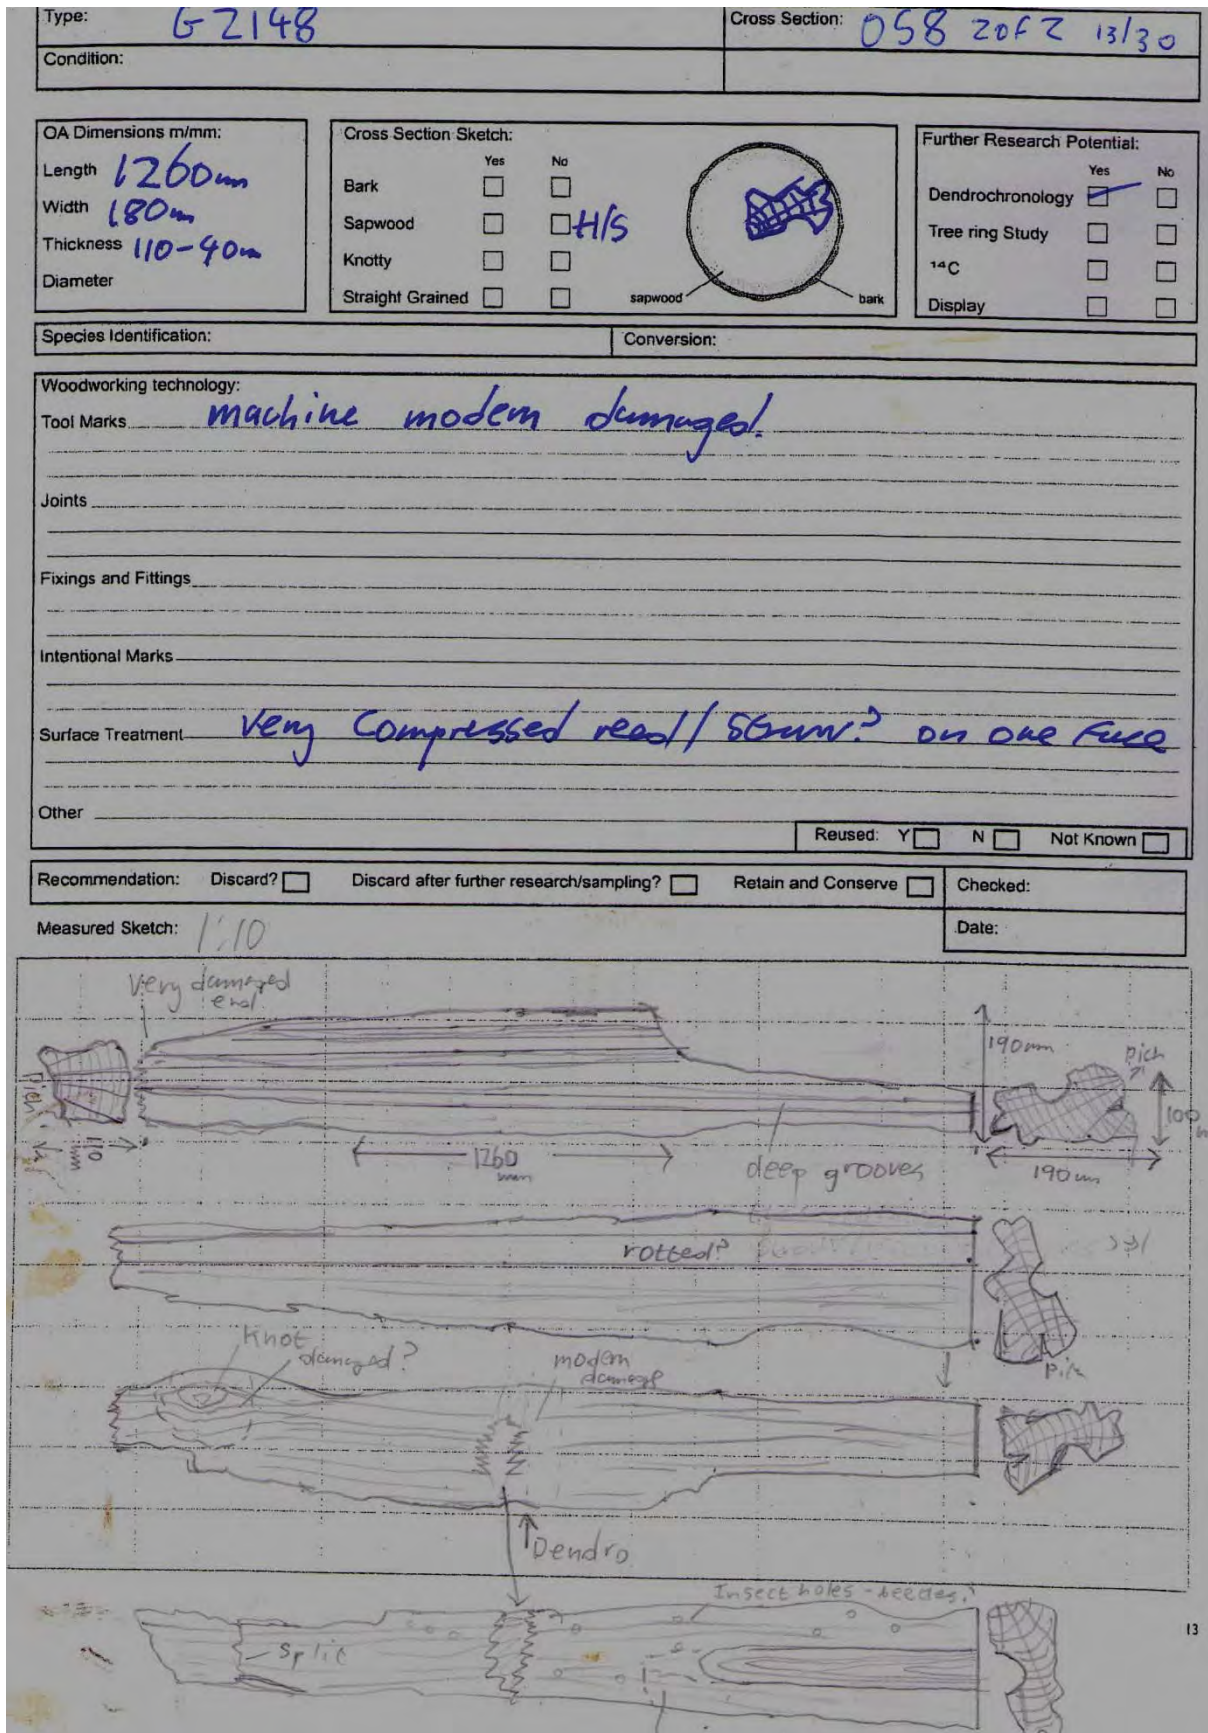 Type: G2148
Cross Section: 058 2 OF 2 13/30
Condition:
OA Dimensions m/mm:
Length 1260mm
Width 180mm
Thickness 110-40mm
Diameter
Cross Section Sketch:
Yes No
Bark
Sapwood H/S
Knotty
Straight Grained
sapwood
bark
Further Research Potential:
Yes No
Dendrochronology
Tree ring Study
¹⁴C
Display
Species Identification:
Conversion:
Woodworking technology:
Tool Marks machine modern damaged.
Joints
Fixings and Fittings
Intentional Marks
Surface Treatment very compressed reed/straw? on one face
Other
Reused: Y N Not Known
Recommendation: Discard? Discard after further research/sampling? Retain and Conserve
Checked:
Measured Sketch: 1:10
Date:
very damaged
end.
190mm
Pith
Pith
110
mm
1260
mm
deep grooves
100
190mm
rotted?
Knot
damaged?
modern
damage
Pith
Dendro
Insect holes - beetles?
Split
13